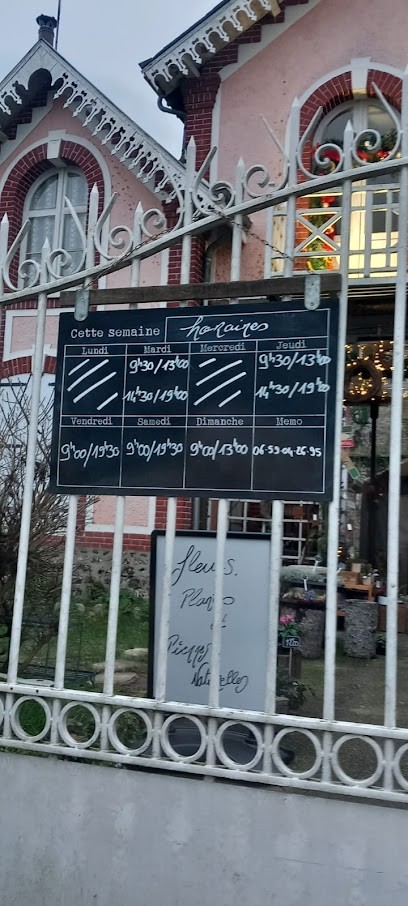 Cette semaine horaires
Lundi Mardi Mercredi Jeudi
9h30/13h00 9h30/13h00
14h30/19h00 14h30/19h00
Vendredi Samedi Dimanche Memo
9h00/19h30 9h00/19h30 9h00/13h00 06.59.04.26.95
fleurs.
Plantes
et
Pierres
Naturelles